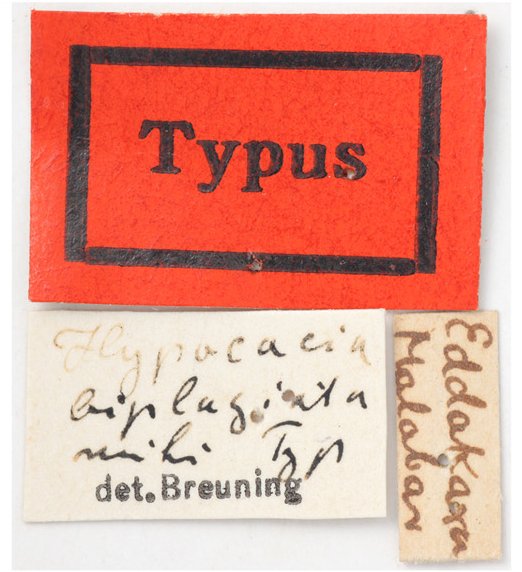 Typus
Hypocacia
biplagiata
mihi Typ
det. Breuning
Eddakara
Malabar